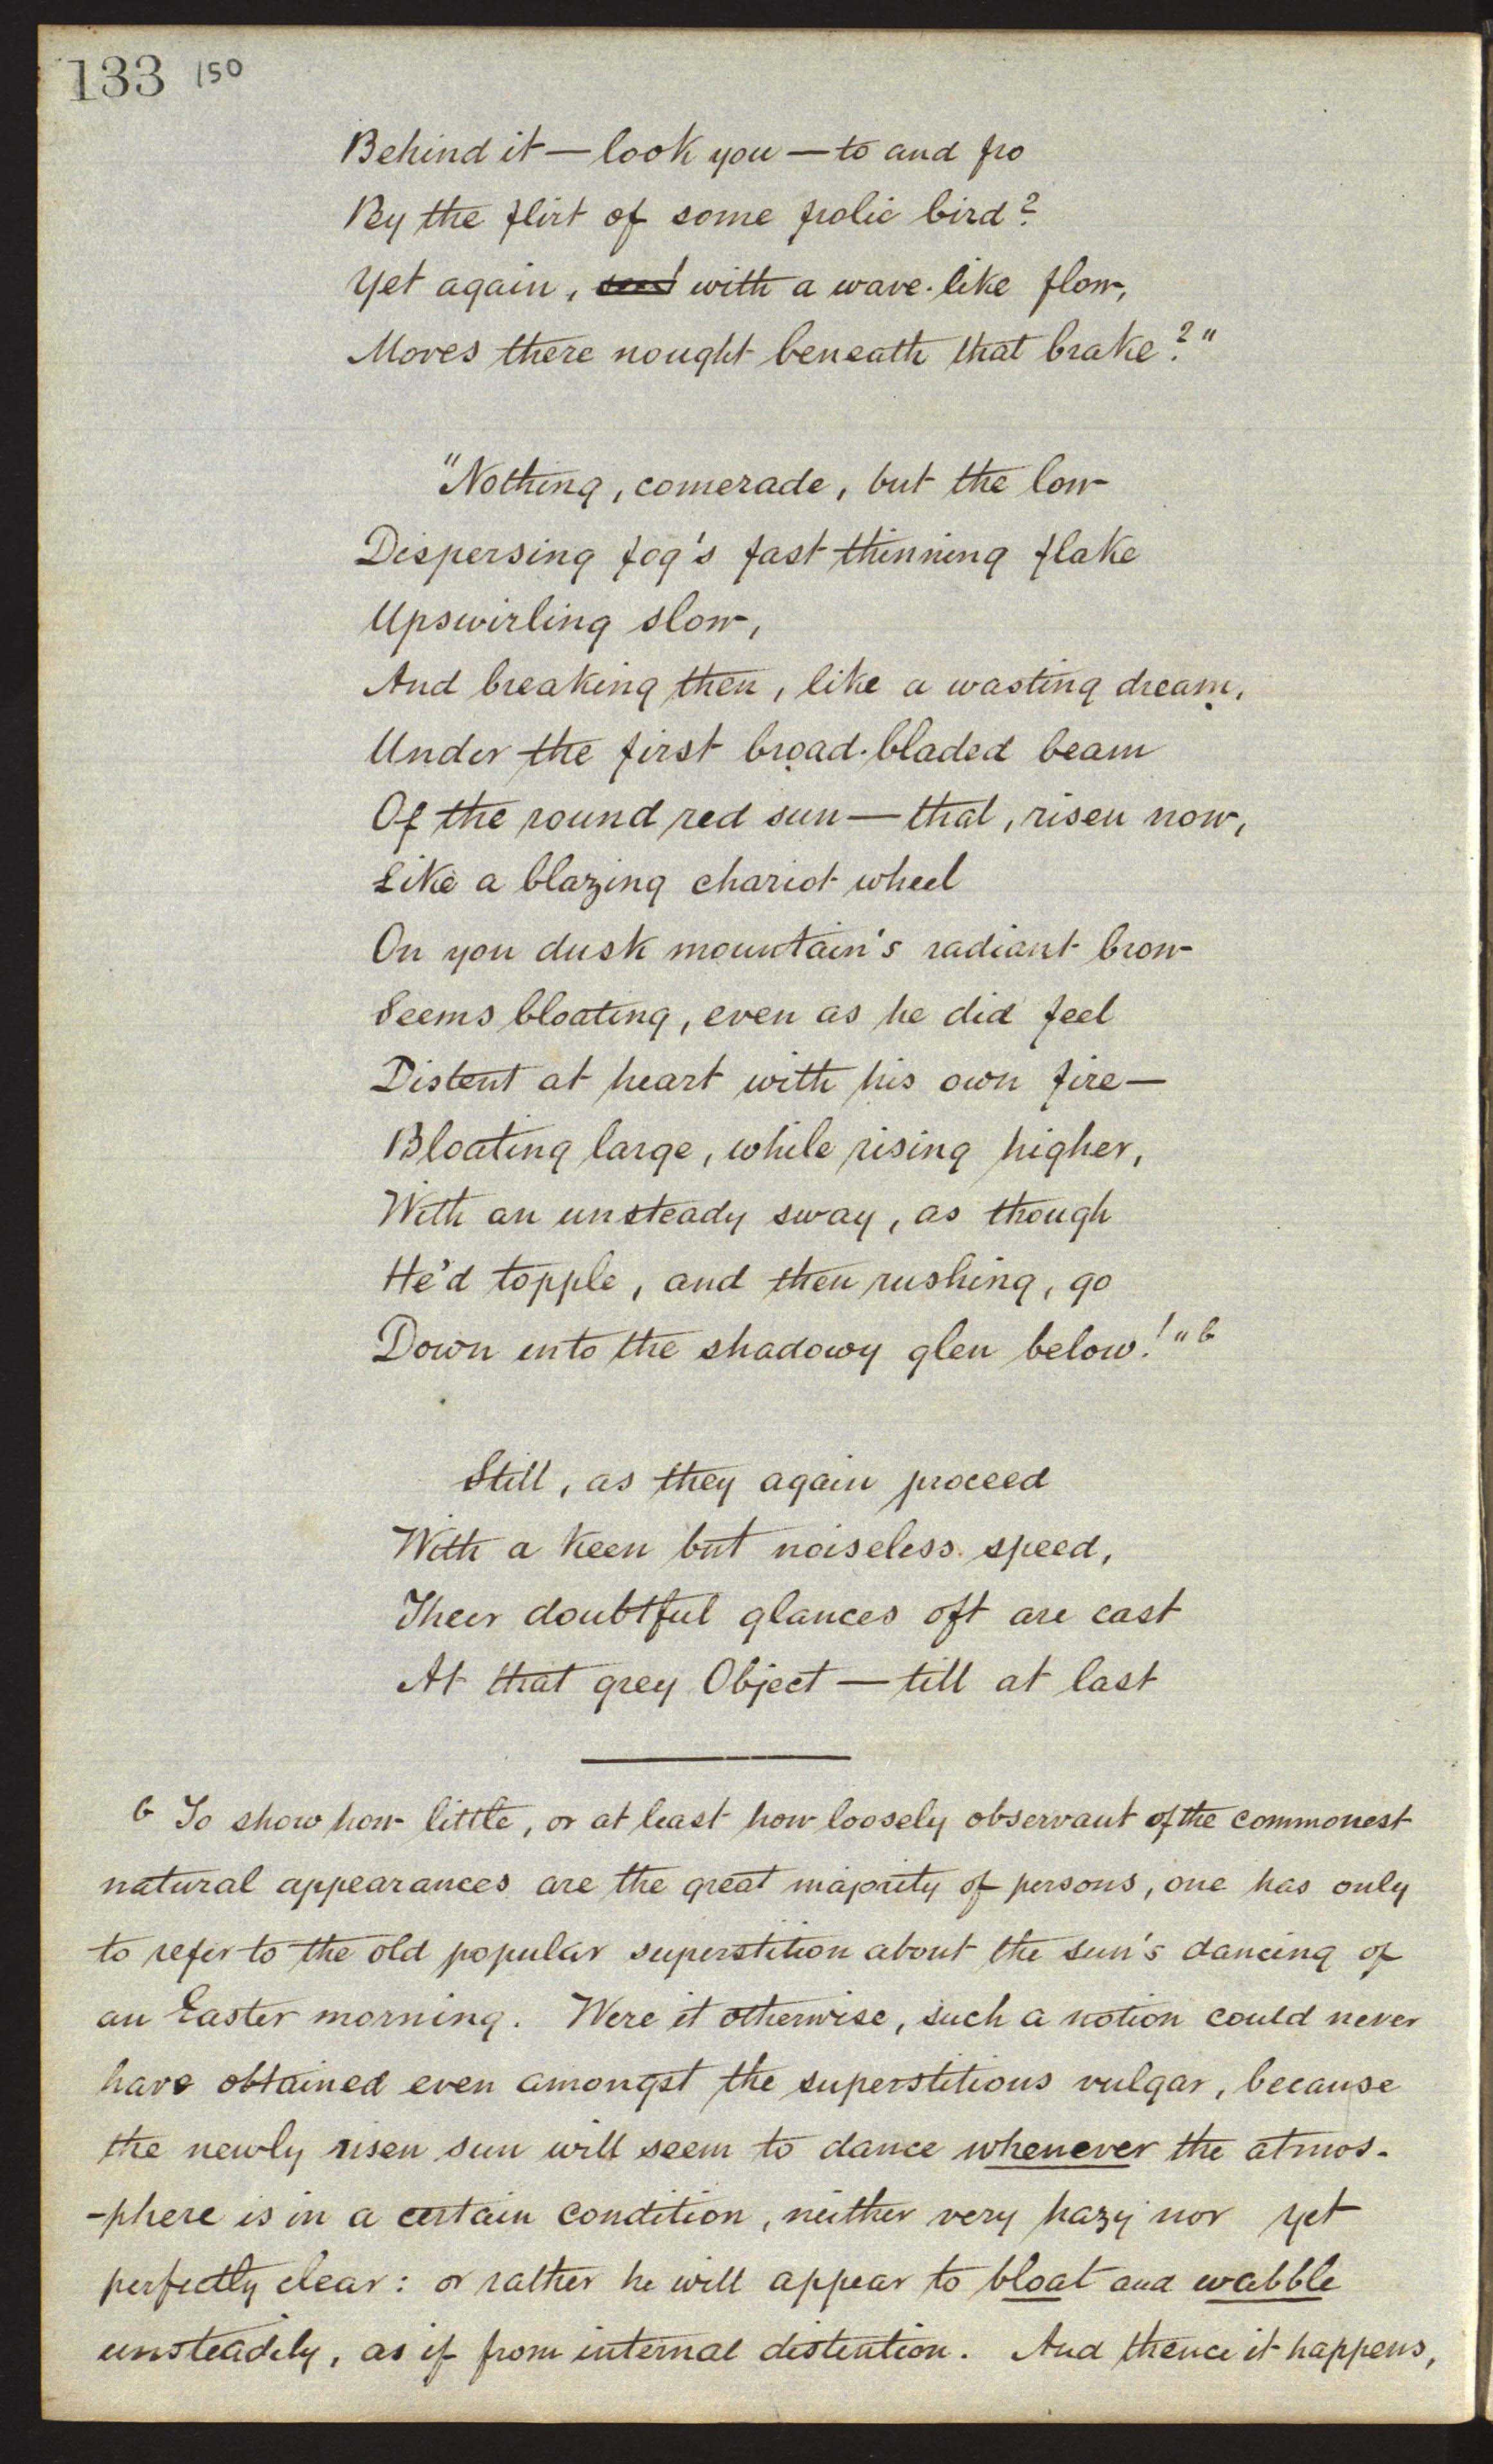 133 150
Behind it — look you — to and fro
By the flirt of some frolic bird?
Yet again, with a wave-like flow,
Moves there nought beneath that brake?"
"Nothing, comerade, but the low
Dispersing fog's fast thinning flake
Upswirling slow,
And breaking then, like a wasting dream,
Under the first broad-bladed beam
Of the round red sun — that, risen now,
Like a blazing chariot wheel
On yon dusk mountain's radiant brow
Seems bloating, even as he did feel
Distent at heart with his own fire —
Bloating large, while rising higher,
With an unsteady sway, as though
He'd topple, and then rushing, go
Down into the shadowy glen below!" 6
Still, as they again proceed
With a keen but noiseless speed,
Their doubtful glances oft are cast
At that grey Object — till at last
6 To show how little, or at least how loosely observant of the commonest
natural appearances are the great majority of persons, one has only
to refer to the old popular superstition about the sun's dancing of
an Easter morning. Were it otherwise, such a notion could never
have obtained even amongst the superstitious vulgar, because
the newly risen sun will seem to dance whenever the atmos-
-phere is in a certain condition, neither very hazy nor yet
perfectly clear: or rather he will appear to bloat and wabble
unsteadily, as if from internal distention. And thence it happens,